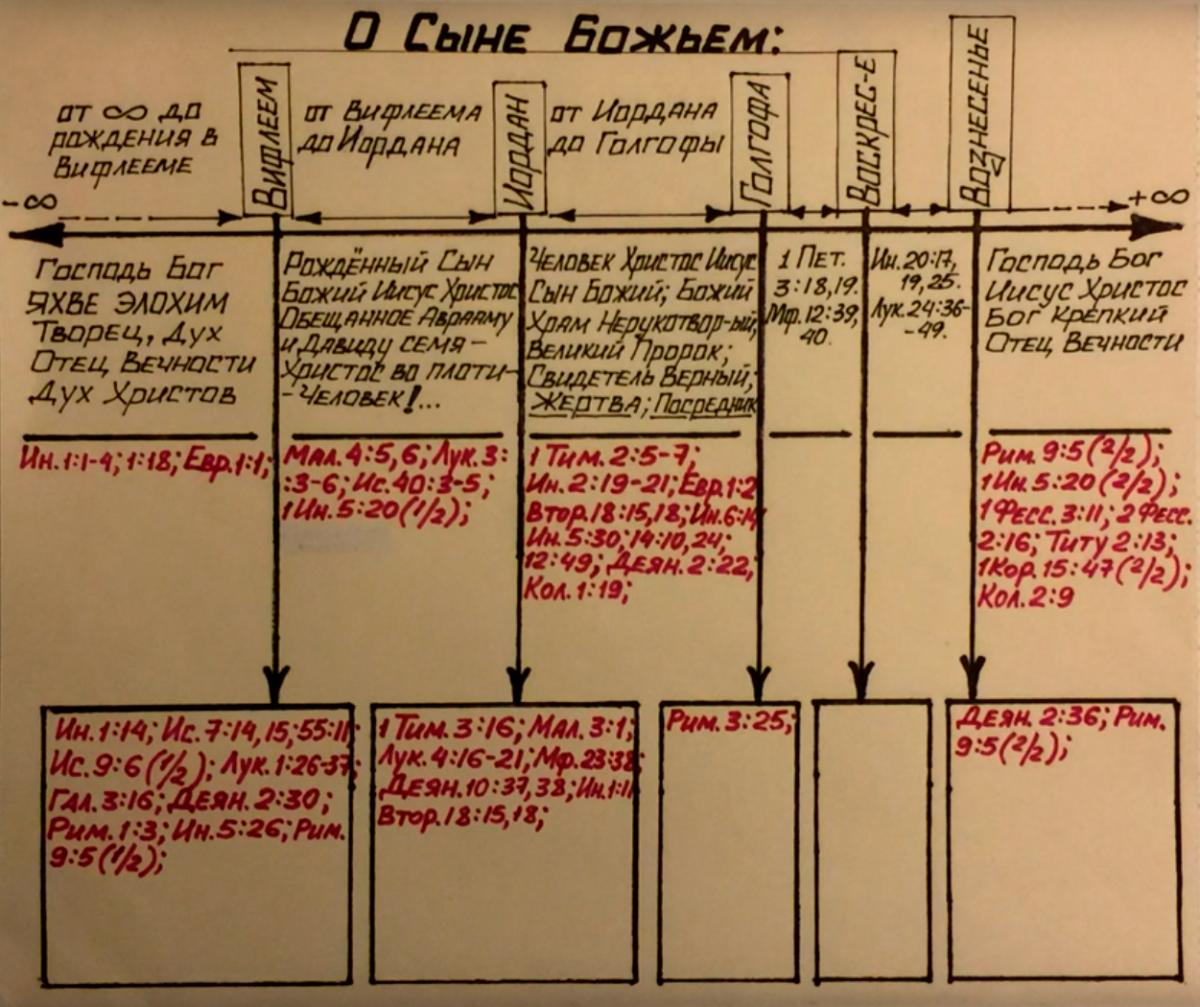 О Сыне Божьем:
от ∞ до
рождения в
Вифлееме
Вифлеем
от Вифлеема
до Иордана
Иордан
от Иордана
до Голгофы
Голгофа
Воскрес-е
Вознесенье
-∞
+∞
Господь Бог
ЯХВЕ ЭЛОХИМ
Творец, Дух
Отец Вечности
Дух Христов
Рождённый Сын
Божий Иисус Христос
Обещанное Аврааму
и Давиду семя -
Христос во плоти-
-Человек!...
Человек Христос Иисус
Сын Божий; Божий
Храм Нерукотвор-ый;
Великий Пророк;
Свидетель Верный;
Жертва; Посредник
1 Пет.
3:18,19.
Мф.12:39,
40.
Ин.20:17,
19,25.
Лук.24:36-
-49.
Господь Бог
Иисус Христос
Бог Крепкий
Отец Вечности
Ин.1:1-4; 1:18; Евр.1:1;
Мал.4:5,6; Лук.3:
:3-6; Ис.40:3-5;
1Ин.5:20(1/2);
1 Тим.2:5-7;
Ин.2:19-21; Евр.1:2
Втор.18:15,18; Ин.6:14
Ин.5:30; 14:10,24;
12:49; Деян.2:22;
Кол.1:19;
Рим.9:5(2/2);
1Ин.5:20(2/2);
1Фесс.3:11; 2Фесс.
2:16; Титу 2:13;
1Кор.15:47(2/2);
Кол.2:9
Ин.1:14; Ис.7:14,15; 55:11;
Ис.9:6(1/2); Лук.1:26-37;
Гал.3:16; Деян.2:30;
Рим.1:3; Ин.5:26; Рим.
9:5(1/2);
1 Тим.3:16; Мал.3:1;
Лук.4:16-21; Мф.23:38;
Деян.10:37,38; Ин.1:11
Втор.18:15,18;
Рим.3:25;
Деян.2:36; Рим.
9:5(2/2);